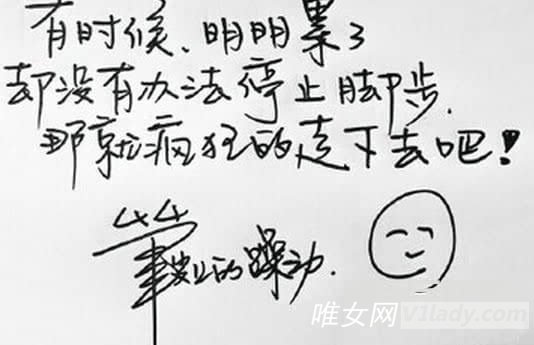 有时候、明明累了
却没有办法停止脚步.
那就疯狂的走下去吧!
的躁动.
唯女网 V1lady.com